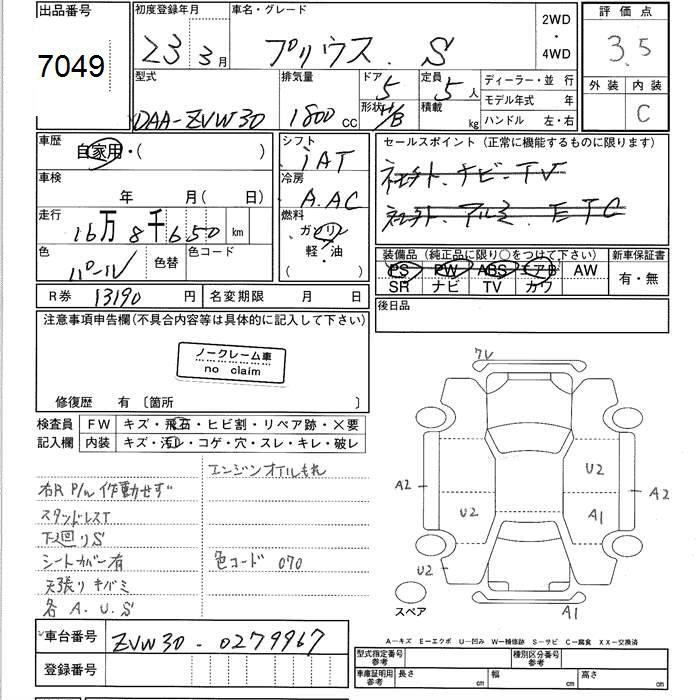 出品番号
7049
初度登録年月
23 3月
車名・グレード
プリウス S
2WD
・
4WD
評価点
3.5
外装 内装
C
型式
DAA-ZVW30
排気量
1800 CC
ドア 5
形状 H/B
定員 5人
積載 kg
ディーラー・並行
モデル年式 年
ハンドル 左・右
車歴
自家用・( )
車検
年 月( 日)
走行
16万8千650 km
色
パール
色替
色コード
シフト
iAT
冷房
A.AC
燃料
ガソリン
軽・油
( )
セールスポイント (正常に機能するものに限ります)
ナビ・TV
アルミ ETC
装備品 (純正品に限り○をつけて下さい)
PS PW ABS エアB AW
SR ナビ TV カワ
新車保証書
有・無
R券 13190 円
名変期限 月 日
後日品
注意事項申告欄(不具合内容等は具体的に記入して下さい)
ノークレーム車
no claim
修復歴 有 〔箇所 〕
検査員
記入欄
FW キズ・飛石・ヒビ割・リペア跡・×要
内装 キズ・汚レ・コゲ・穴・スレ・キレ・破レ
エンジンオイルもれ
右R P/W 作動せず
スタッドレスT
下廻りS
シートカバー有
色コード 070
天張りキバミ
各 A.U.S
7V
U2
A2
A2
U2
A1
U2
スペア
A1
A－キズ E－エクボ U－凹み W－補修跡 S－サビ C－腐食 XX－交換済
車台番号
ZVW30-0279967
登録番号
型式指定番号
参考
種別区分番号
参考
車庫証明用
参考
長さ cm 幅 cm 高さ cm